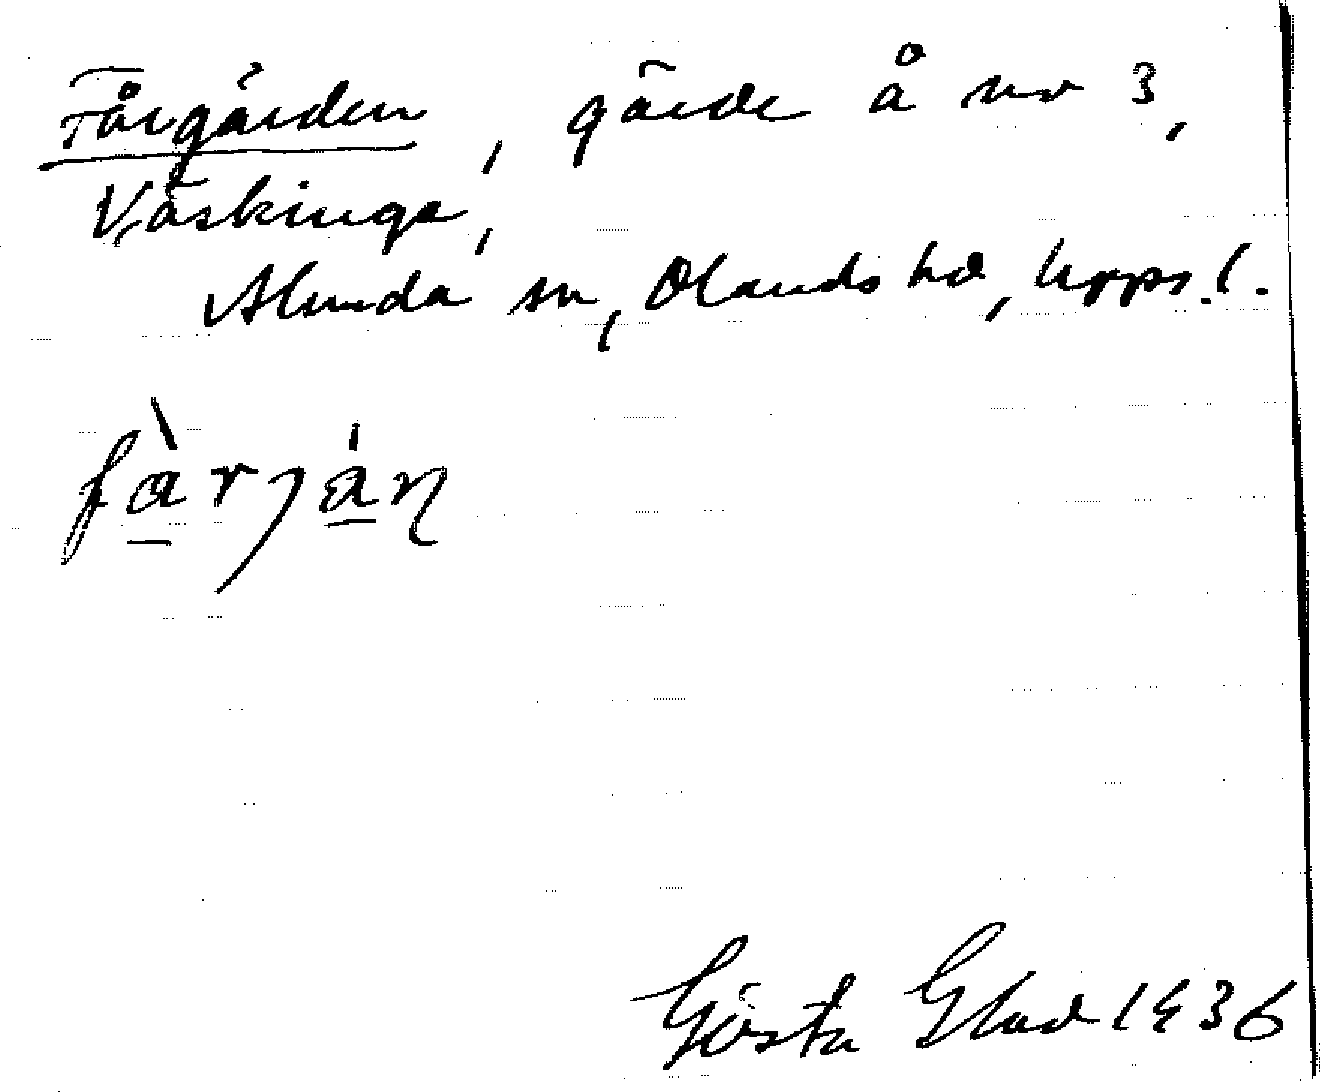 Fårgården, gärde å nr 3,
Väskinge,
Alunda sn, Olands hd, Upps. l.
fàrján
Gösta Glad 1936